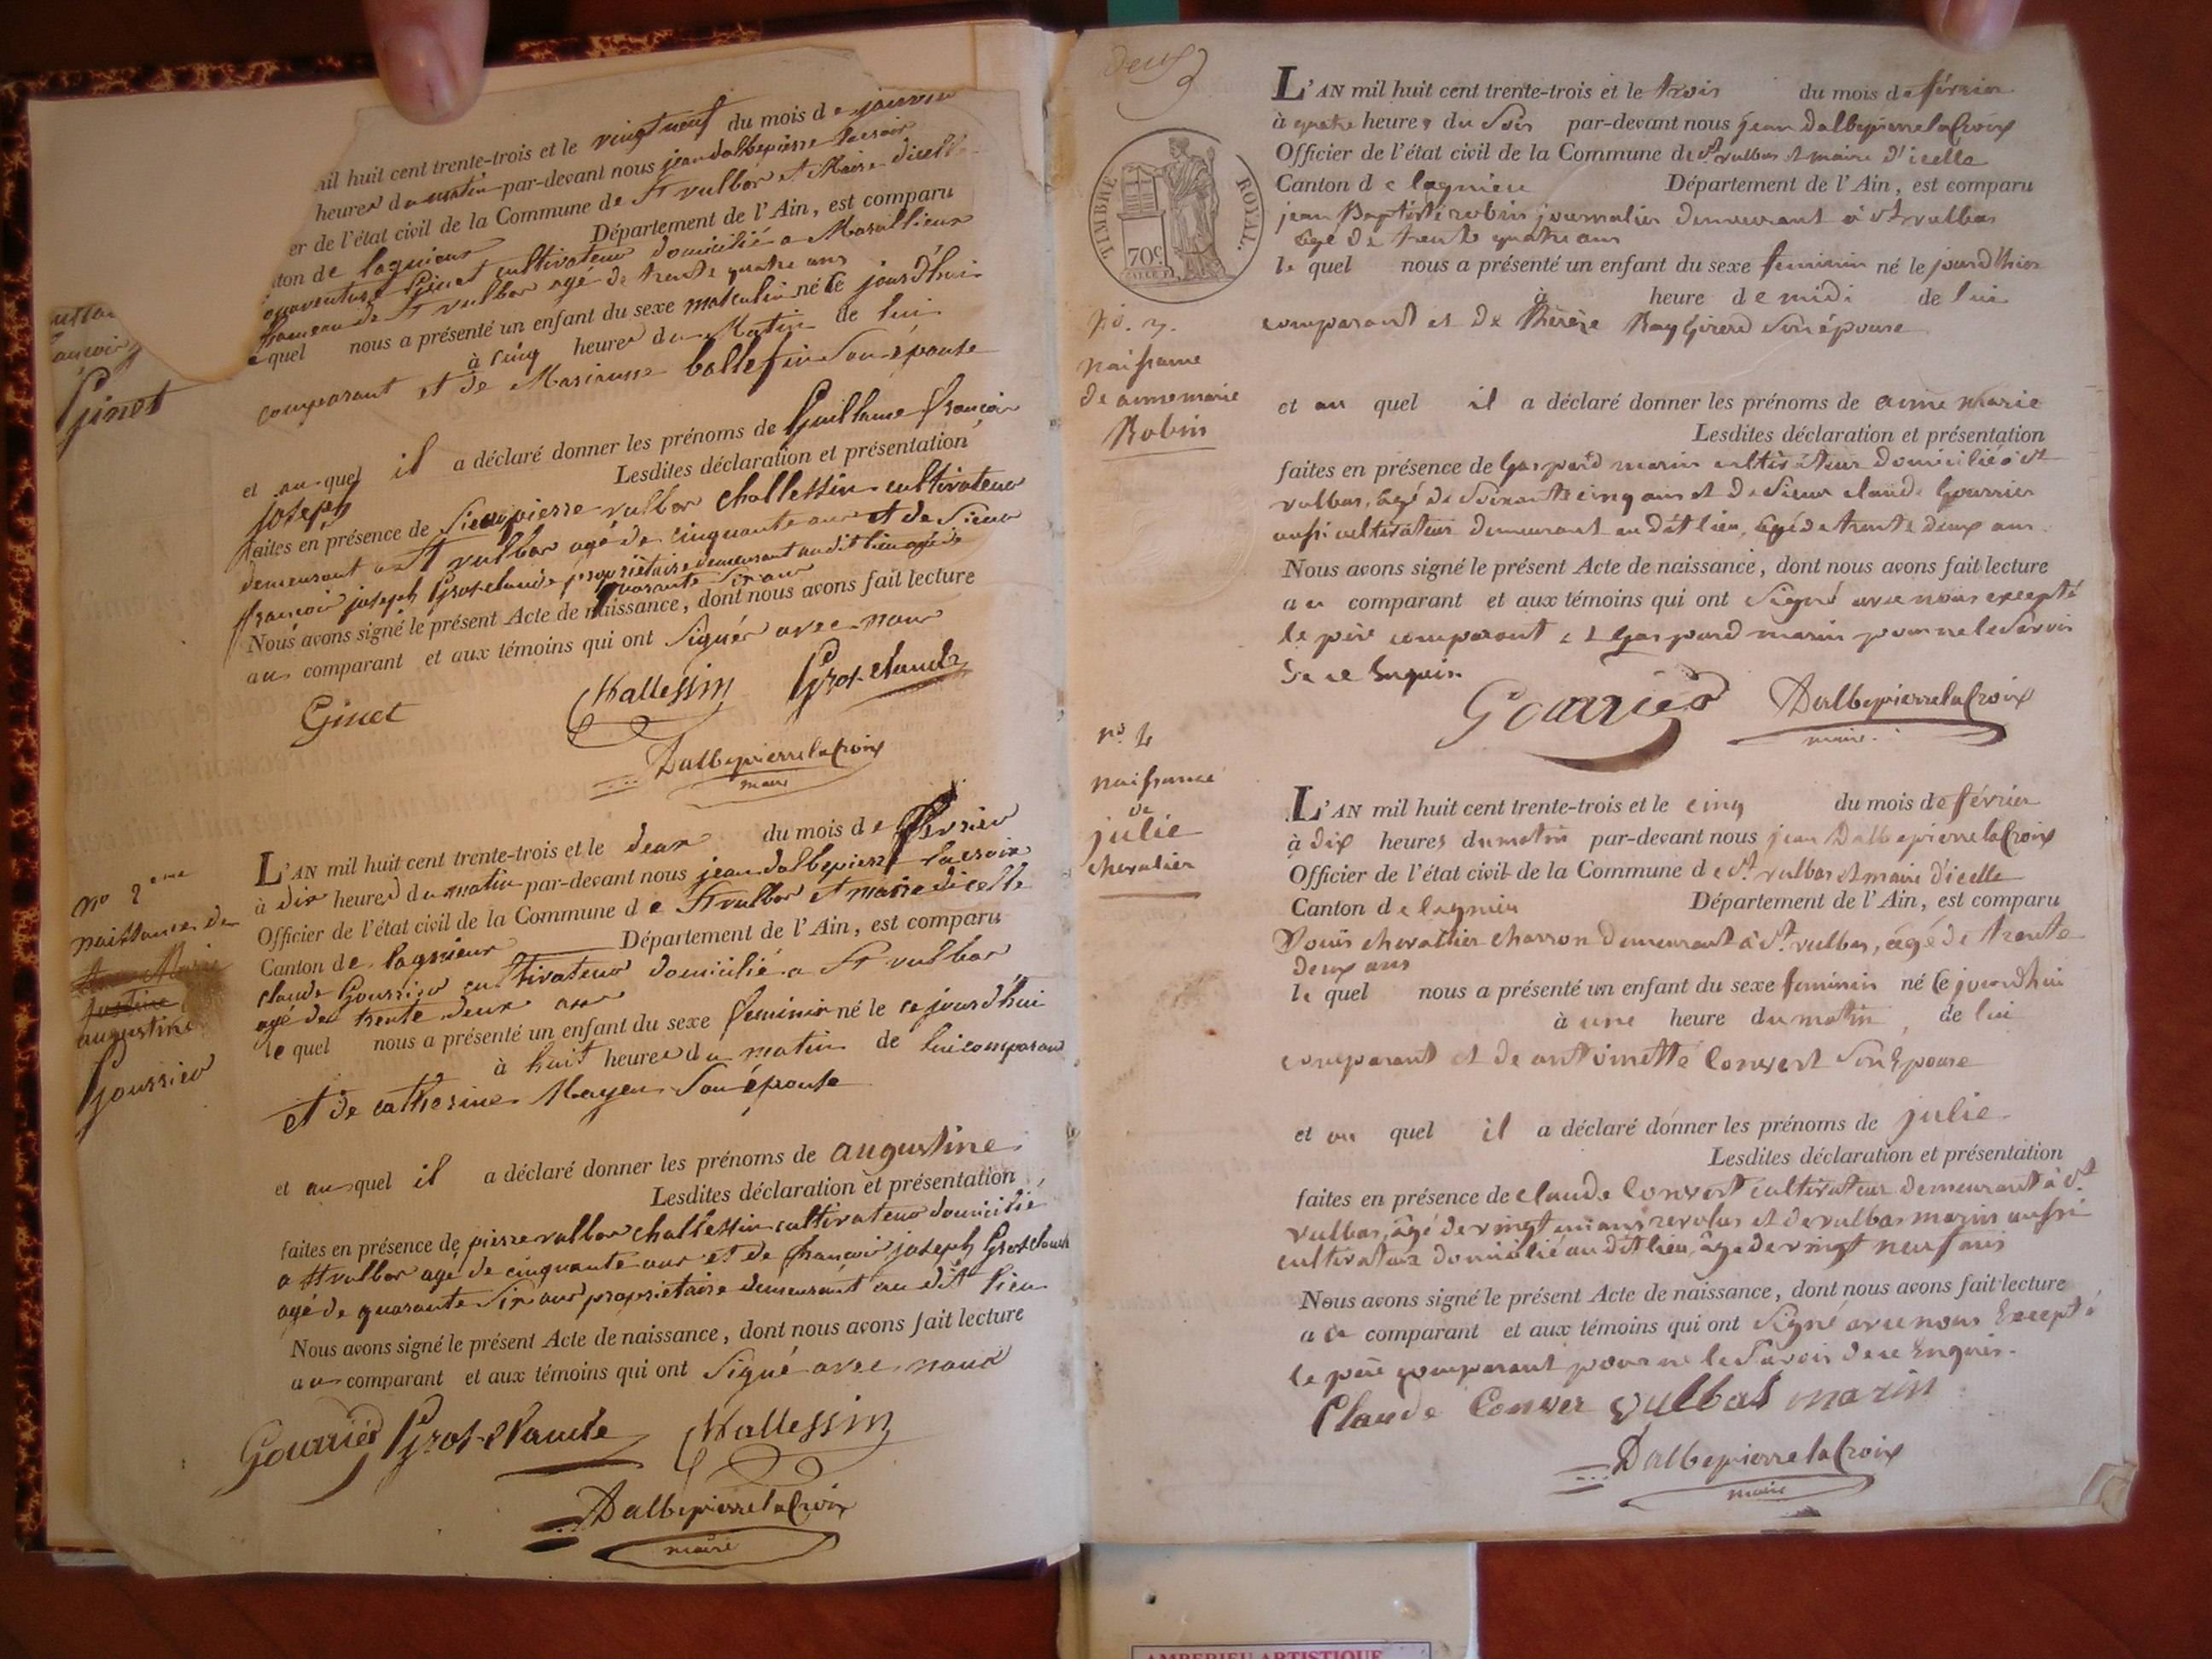 mil huit cent trente-trois et le vingt neuf du mois de janvier
heures du matin par-devant nous jean dalbepierre lacroix
er de l'état civil de la Commune de St vulbas et Maire dicelle
ton de lagnieux Département de l'Ain, est comparu
Ginet cultivateur domicilié a Marallieux
hameau de St vulbas agé de trente quatre ans
quel nous a présenté un enfant du sexe masculin né le jourd'hui
à cinq heures du Matin de lui
comparant et de Marianne ballefin Son épouse
Ginet
et au quel il a déclaré donner les prénoms de Guillaume françois
joseph Lesdites déclaration et présentation
faites en présence de Sieur pierre vulbas challessin cultivateur
demeurant a St vulbas agé de cinquante ans et de Sieur
françois joseph Grosclaude propriétaire demeurant audit lieu agé de
quarante Six ans
Nous avons signé le présent Acte de naissance, dont nous avons fait lecture
au comparant et aux témoins qui ont Signés avec nous
Ginet Challessin Gros-claude
Dalbepierrelacroix
maire
no 2eme
naissance de
augustine
Gourrier
L'AN mil huit cent trente-trois et le deux du mois de fevrier
à dix heures du matin par-devant nous jean dalbepierre lacroix
Officier de l'état civil de la Commune de St vulbas et maire dicelle
Canton de lagnieux Département de l'Ain, est comparu
claude Gourrier cultivateur domicilié a St vulbas
agé de trente deux ans
le quel nous a présenté un enfant du sexe feminin né le ce jourd'hui
à huit heures du matin de lui comparant
et de catherine Mayeu Son épouse
et au quel il a déclaré donner les prénoms de augustine
Lesdites déclaration et présentation
faites en présence de pierre vulbas challessin cultivateur domicilié
a St vulbas agé de cinquante ans et de françois joseph Grosclaude
agé de quarante Six ans propriétaire demeurant au dit lieu
Nous avons signé le présent Acte de naissance, dont nous avons fait lecture
au comparant et aux témoins qui ont Signé avec nous
Gourrier Gros-claude Challessin
Dalbepierrelacroix
maire
deux
TIMBRE ROYAL.
70c
L'AN mil huit cent trente-trois et le trois du mois de février
à quatre heures du Soir par-devant nous jean dalbepierrelacroix
Officier de l'état civil de la Commune de St vulbas et maire d'icelle
Canton de lagnieu Département de l'Ain, est comparu
jean Baptiste robin journalier demeurant à St vulbas
agé de trente quatre ans
le quel nous a présenté un enfant du sexe feminin né le jourd'hier
à heure de midi de lui
comparant et de Thérèse Raygirerd Son épouse
no. 3.
naissance
de anne marie
Robin
et au quel il a déclaré donner les prénoms de anne marie
Lesdites déclaration et présentation
faites en présence de Gaspard marin cultivateur domicilié à St
vulbas, agé de Soixante cinq ans et de Sieur claude Gourrier
aussi cultivateur demeurant au dit lieu, agé de trente deux ans.
Nous avons signé le présent Acte de naissance, dont nous avons fait lecture
au comparant et aux témoins qui ont Signé avec nous excepté
le père comparant et Gaspard marin pour ne le Savoir
de ce Enquis.
Gourrier Dalbepierrelacroix
maire.
no. 4
naissance
de
julie
chevalier
L'AN mil huit cent trente-trois et le cinq du mois de février
à dix heures du matin par-devant nous jean Dalbepierrelacroix
Officier de l'état civil de la Commune de St. vulbas et maire d'icelle
Canton de lagnieu Département de l'Ain, est comparu
Louis chevallier charron demeurant à St. vulbas, âgé de trente
deux ans
le quel nous a présenté un enfant du sexe féminin né le jourdhui
à une heure du matin, de lui
comparant et de antoinette Convert Son Epouse
et au quel il a déclaré donner les prénoms de julie
Lesdites déclaration et présentation
faites en présence de claude Convert cultivateur demeurant à St.
vulbas, âgé de vingt un ans revolus et de vulbas marin aussi
cultivateur domicilié au dit lieu, âgé de vingt neuf ans
Nous avons signé le présent Acte de naissance, dont nous avons fait lecture
au comparant et aux témoins qui ont Signé avec nous Excepté
le père comparant pour ne le Savoir de ce Enquis.
Claude Conver vulbas marin
Dalbepierrelacroix
maire
AMBERIEU ARTISTIQUE